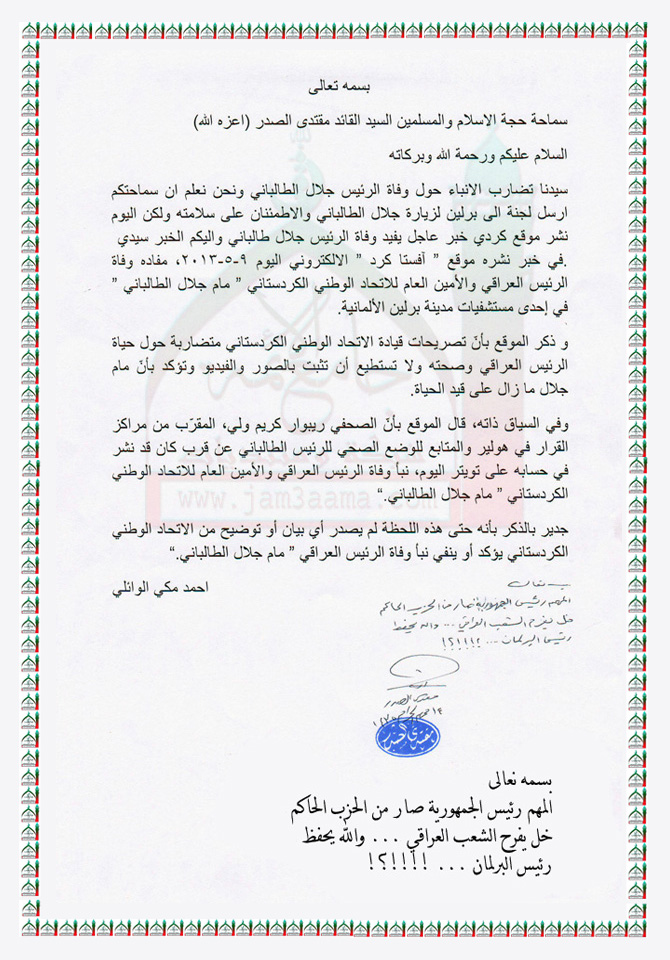 بسمه تعالى
سماحة حجة الاسلام والمسلمين السيد القائد مقتدى الصدر (اعزه الله)
السلام عليكم ورحمة الله وبركاته
سيدنا تضارب الانباء حول وفاة الرئيس جلال الطالباني ونحن نعلم ان سماحتكم
ارسل لجنة الى برلين لزيارة جلال الطالباني والاطمئنان على سلامته ولكن اليوم
نشر موقع كردي خبر عاجل يفيد وفاة الرئيس جلال طالباني واليكم الخبر سيدي
.في خبر نشره موقع " آفستا كرد " الالكتروني اليوم ٩-٥-٢٠١٣، مفاده وفاة
الرئيس العراقي والأمين العام للاتحاد الوطني الكردستاني " مام جلال الطالباني "
في إحدى مستشفيات مدينة برلين الألمانية.
و ذكر الموقع بأنّ تصريحات قيادة الاتحاد الوطني الكردستاني متضاربة حول حياة
الرئيس العراقي وصحته ولا تستطيع أن تثبت بالصور والفيديو وتؤكد بأنّ مام
جلال ما زال على قيد الحياة.
وفي السياق ذاته، قال الموقع بأنّ الصحفي ريبوار كريم ولي، المقرّب من مراكز
القرار في هولير والمتابع للوضع الصحي للرئيس الطالباني عن قرب كان قد نشر
في حسابه على تويتر اليوم، نبأ وفاة الرئيس العراقي والأمين العام للاتحاد الوطني
الكردستاني " مام جلال الطالباني."
www.jam3aama.com
جدير بالذكر بأنه حتى هذه اللحظة لم يصدر أي بيان أو توضيح من الاتحاد الوطني
الكردستاني يؤكد أو ينفي نبأ وفاة الرئيس العراقي " مام جلال الطالباني."
احمد مكي الوائلي
بسمه تعالى
المهم رئيس الجمهورية صار من الحزب الحاكم
خل يفرح الشعب العراقي ... والله يحفظ
رئيس البرلمان ... !!!!؟!
مقتدى الصدر
بسمه تعالى
المهم رئيس الجمهورية صار من الحزب الحاكم
خل يفرح الشعب العراقي ... والله يحفظ
رئيس البرلمان ... !!!!؟!